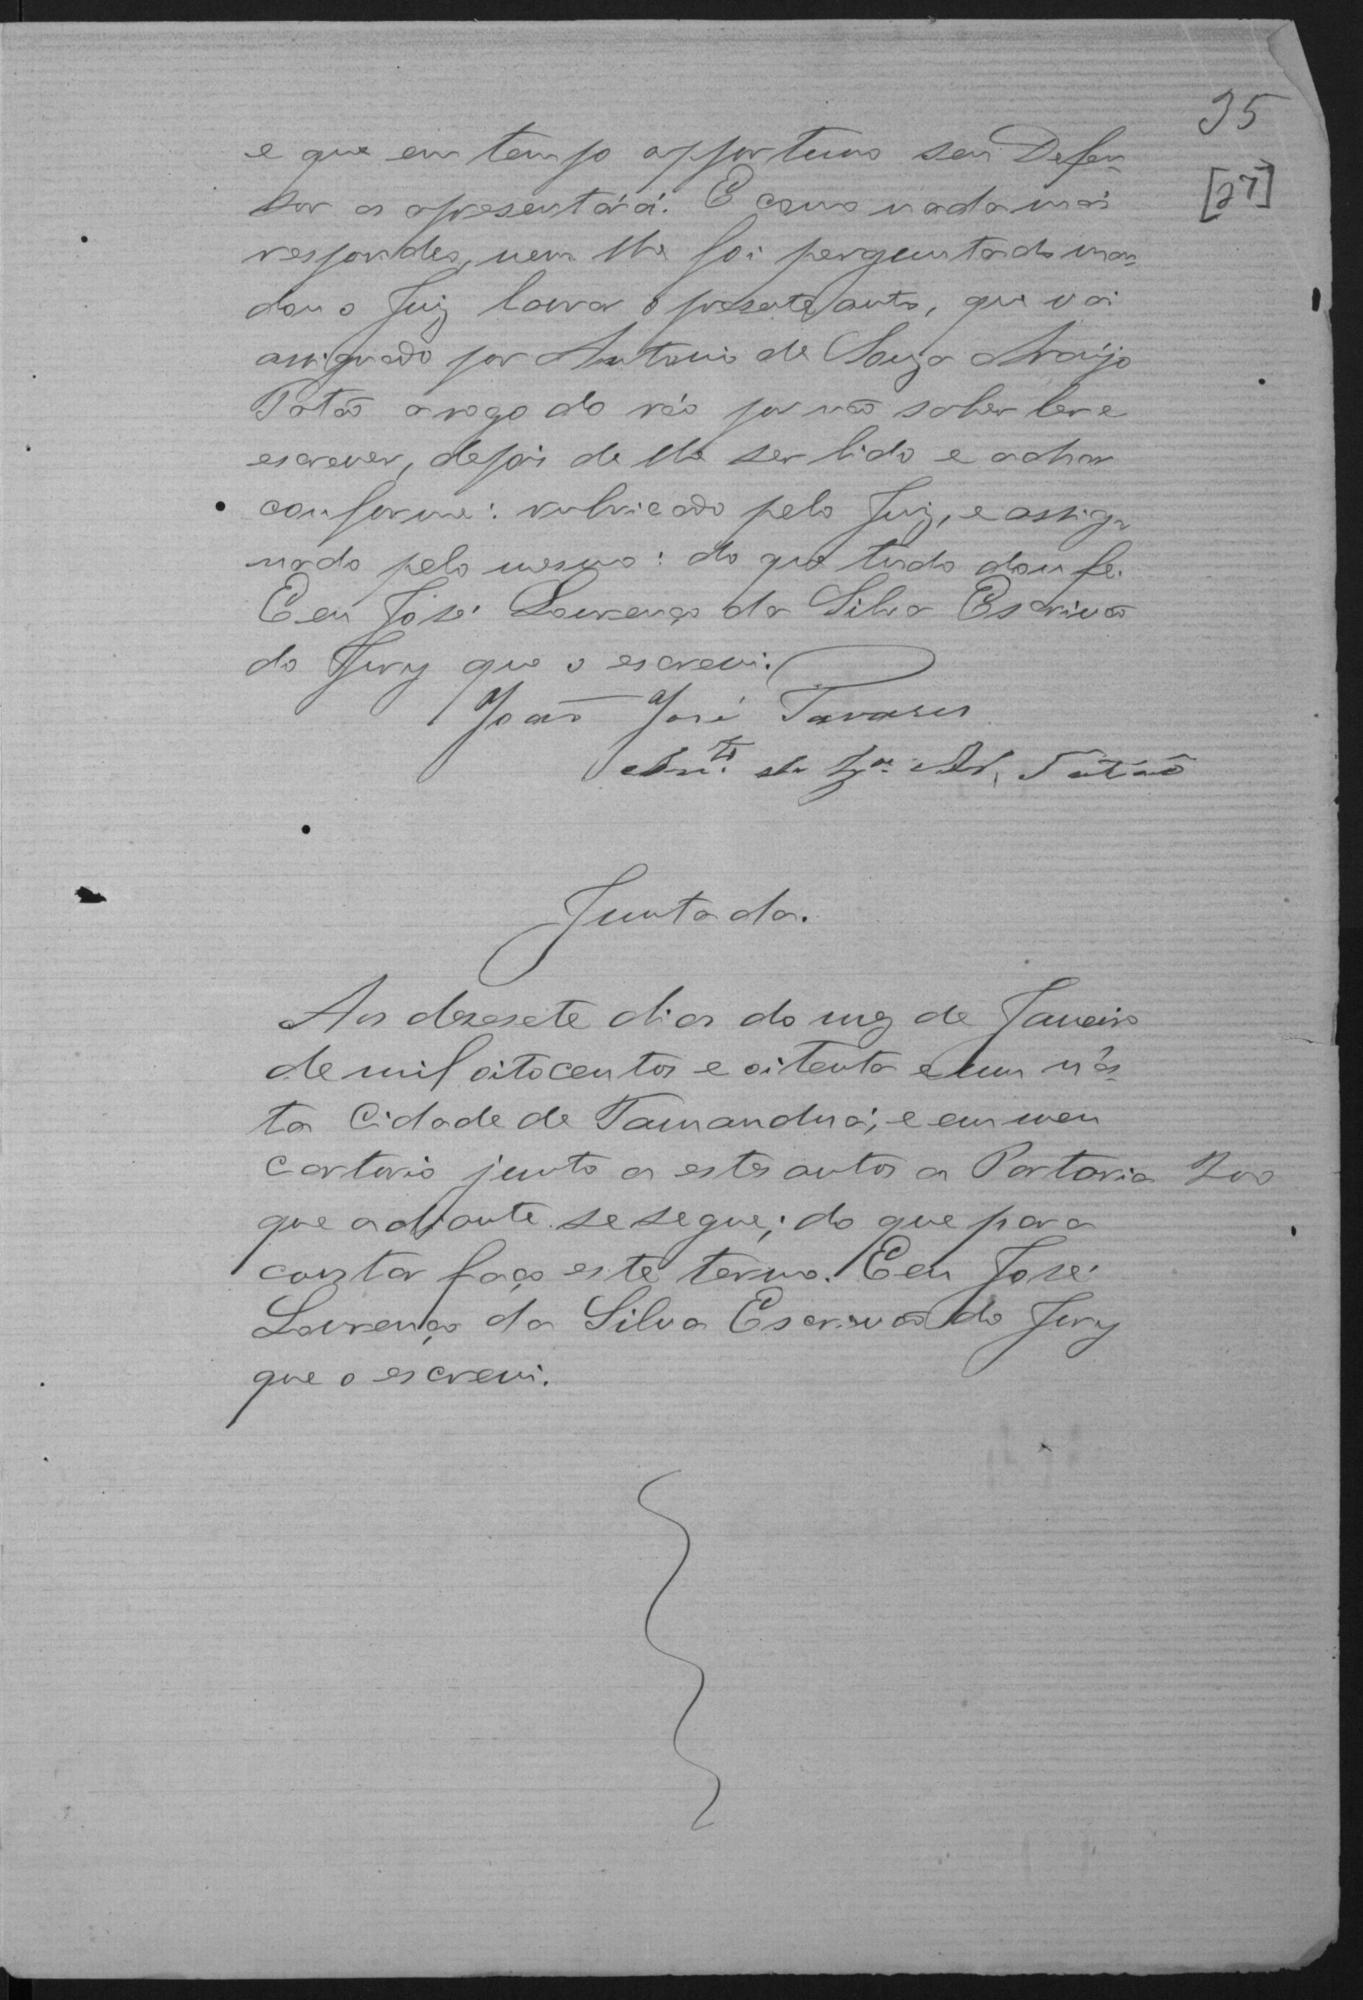 35
[27]
e que em tempo opportuno seu Defen-
sor as apresentará. E como nada mais
respondeo, nem lhe foi perguntado man-
dou o Juiz lavrar o presente auto, que vai
assignado por Antonio de Souza Araújo
Tatão a rogo do réo por não saber ler e
escrever, depois de lhe ser lido e achar
conforme: rubricado pelo Juiz, e assig-
nado pelo mesmo: do que tudo dou fé.
E eu José Lourenço da Silva Escrivão
do Jury que o escrevi.
João José Tavares
Antº. de Sza. Ar. Tatão
Juntada.
Aos desesete dias do mez de Janeiro
de mil oitocentos e oitenta e um n'es-
ta Cidade de Tamanduá, e em meu
cartorio junto a estes autos a Portaria 200
que adiante se segue; do que para
constar faço este termo. E eu José
Lourenço da Silva Escrivão do Jury
que o escrevi.